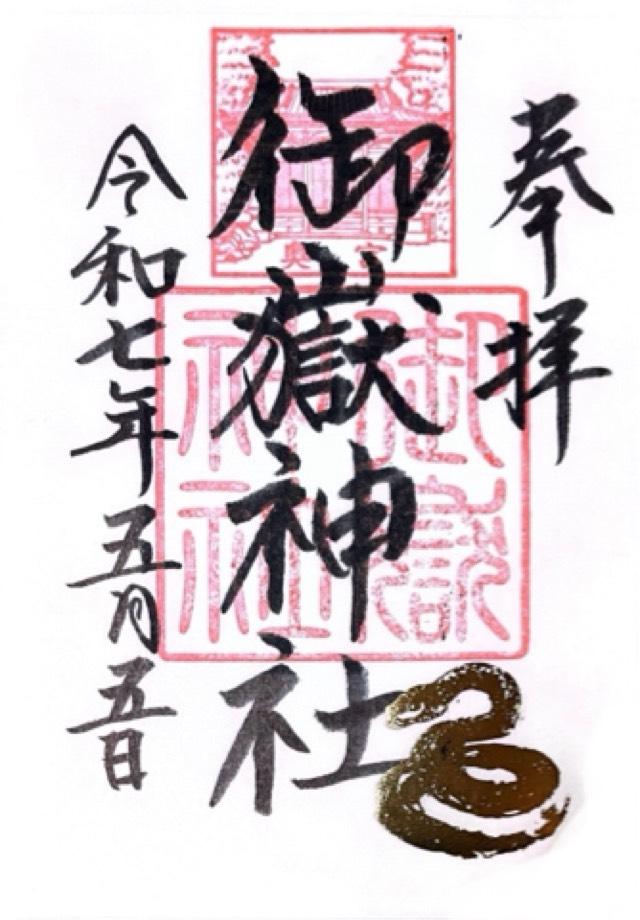 奉拝
御嶽神社
奥宮
御嶽
神社
令和七年五月五日